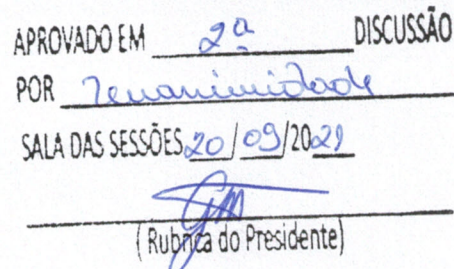 APROVADO EM 2ª DISCUSSÃO
POR Unanimidade
SALA DAS SESSÕES 20/09/2021
(Rubrica do Presidente)